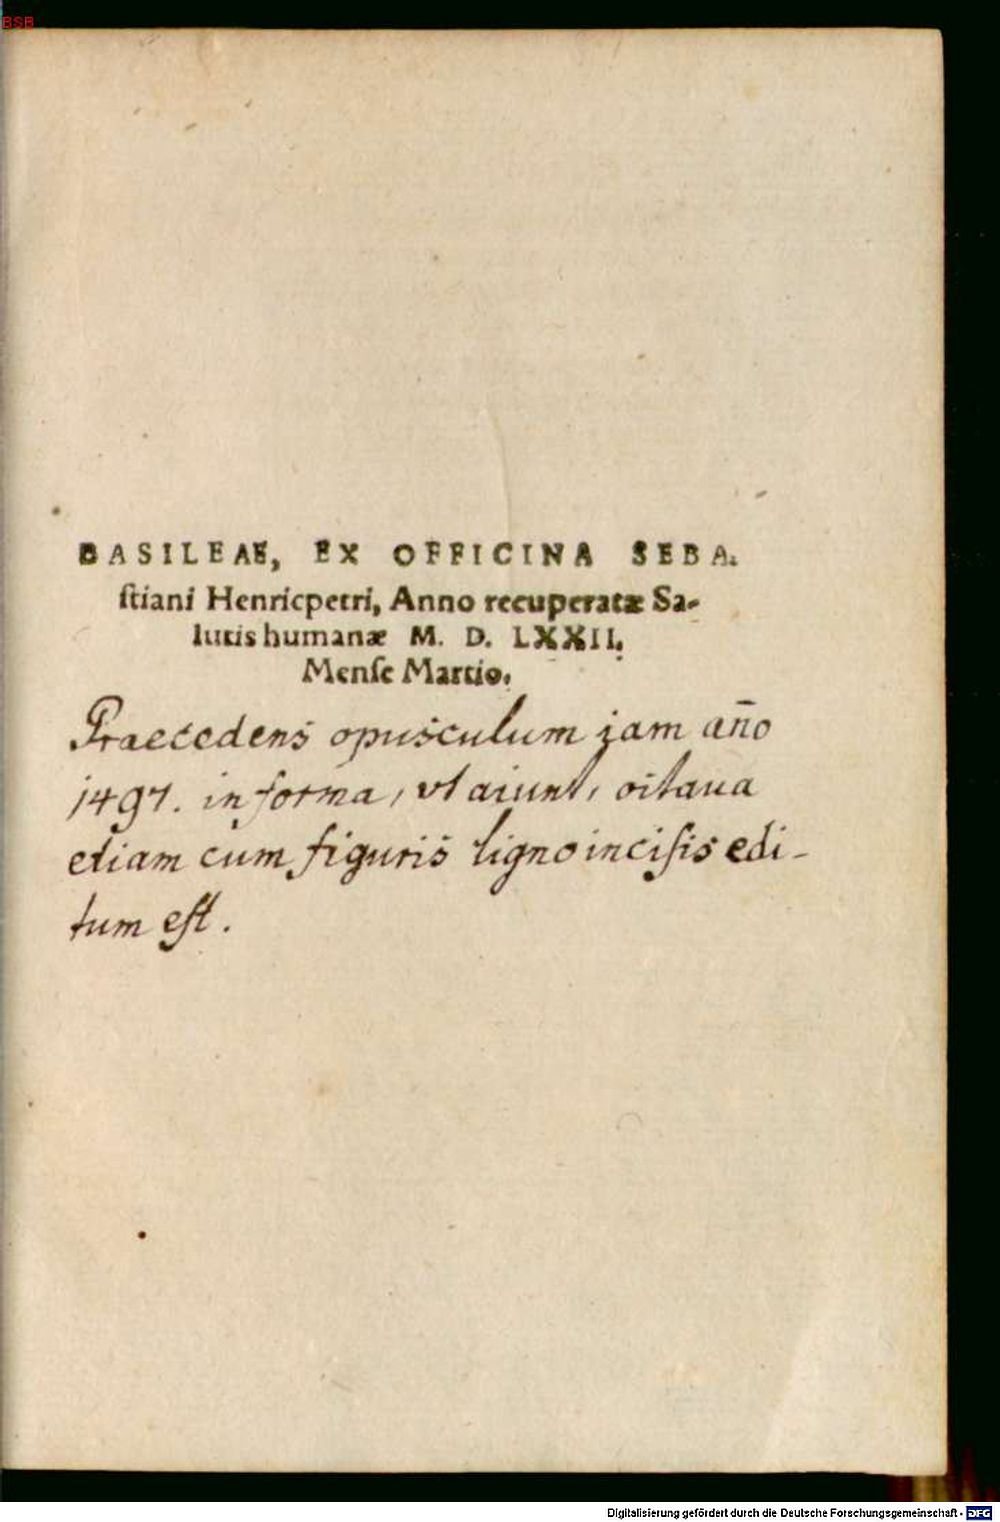 BSB
BASILEAE, EX OFFICINA SEBA-
ſtiani Henricpetri, Anno recuperatæ Sa-
lutis humanæ M. D. LXXII.
Menſe Martio.
Praecedens opusculum jam año
1497. in forma, vt aiunt, octaua
etiam cum figuris ligno inciſis edi-
tum eſt.
Digitalisierung gefördert durch die Deutsche Forschungsgemeinschaft - DFG